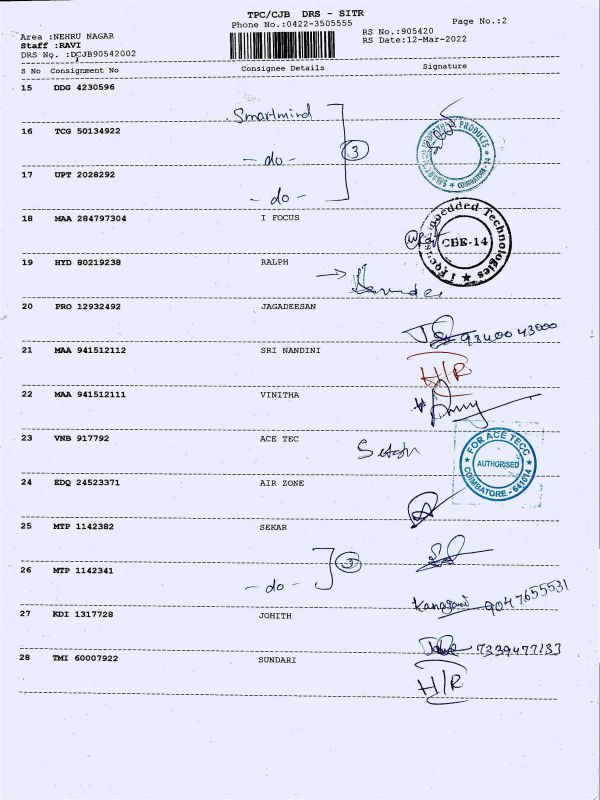 TPC/CJB DRS - SITR
Phone No.:0422-3505555
Page No.:2
Area :NEHRU NAGAR
RS No.:905420
Staff :RAVI
RS Date:12-Mar-2022
DRS No. :DCJB90542002
S No Consignment No Consignee Details Signature
15 DDG 4230596
Smartmind
16 TCG 50134922
- do -
3
17 UPT 2028292
- do -
18 MAA 284797304 I FOCUS
CBE-14
I Focus Embedded Technologies
19 HYD 80219238 RALPH
20 PRO 12932492 JAGADEESAN
9340043000
21 MAA 941512112 SRI NANDINI
H/R
22 MAA 941512111 VINITHA
23 VNB 917792 ACE TEC
FOR ACE TECC
AUTHORISED
COIMBATORE - 641014
24 EDQ 24523371 AIR ZONE
25 MTP 1142382 SEKAR
26 MTP 1142341
- do -
9047655531
27 KDI 1317728 JOHITH
7339477133
28 TMI 60007922 SUNDARI
H/R